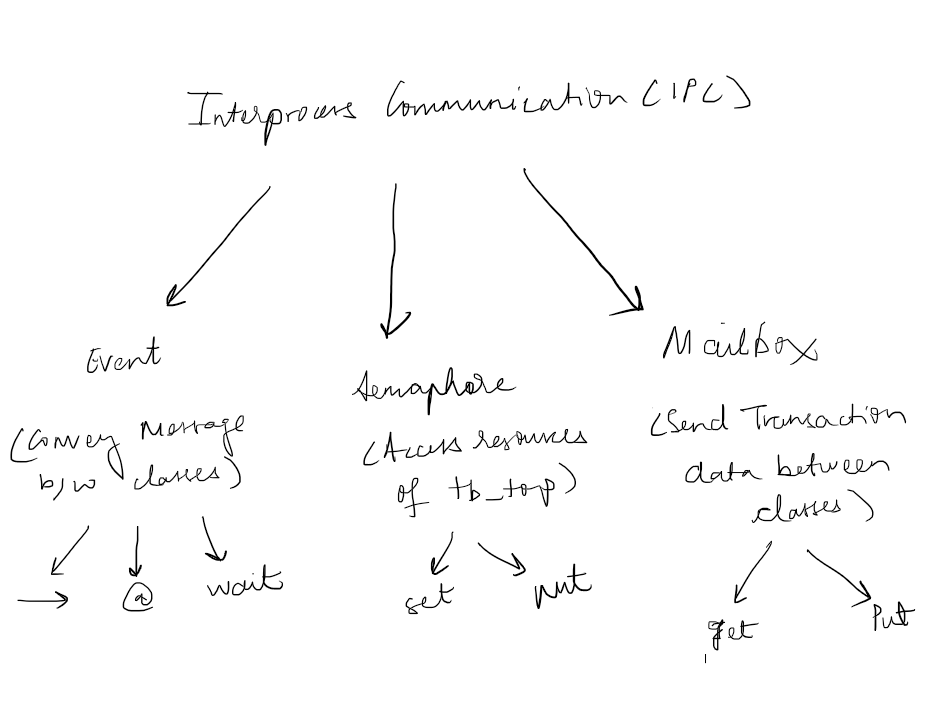 Interprocess Communication (IPC)
Event
(Convey Message
b/w classes)
→ @ wait
Semaphore
(Access resources
of tb_top)
set put
Mailbox
(Send Transaction
data between
classes)
get Put